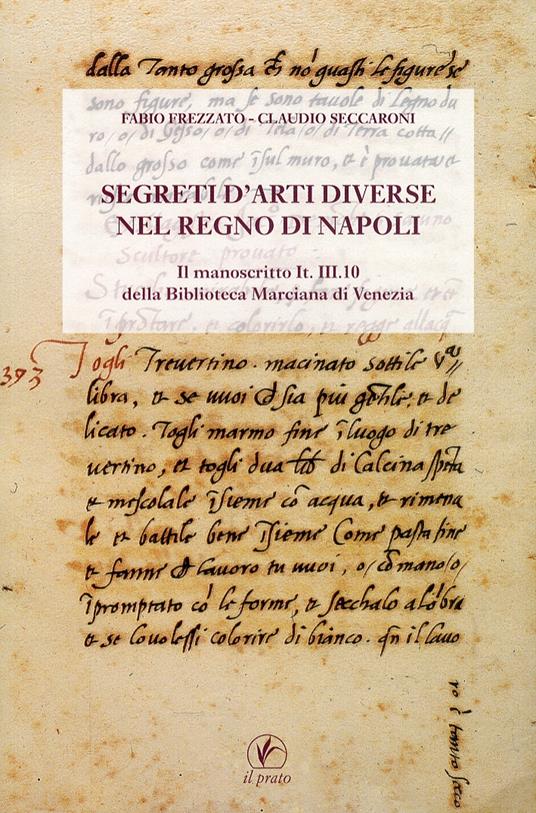 dalla Tanto grossa ch nō guasti le figure se
sono figure, ma se sono tauole di legno du
ro /o/ di Gesso /o/ di Tela /o/ di Terra cotta //
FABIO FREZZATO - CLAUDIO SECCARONI
dallo grosso come ĩsul muro, et è prouata et
SEGRETI D'ARTI DIVERSE
NEL REGNO DI NAPOLI
Scultore prouato
Il manoscritto It. III.10
della Biblioteca Marciana di Venezia
colorirlo, et regge
393
Togli Treuertino. macinato sottile
libra, et se uuoi ch sia piu gētile, et de
licato. Togli marmo fine ĩ luogo di tre
uertino, et togli dua lib di Calcina
et mescolale ĩsieme cō acqua, et rimena
le et battile bene ĩsieme Come pasta fine
et fanne ch lauoro tu uuoi, /o/ cō mano /o/
ĩpromptato cō le forme, et secchalo a lōbra
et se lo uolessi colorire di bianco. qñ il lauo
ro è
secco
il prato